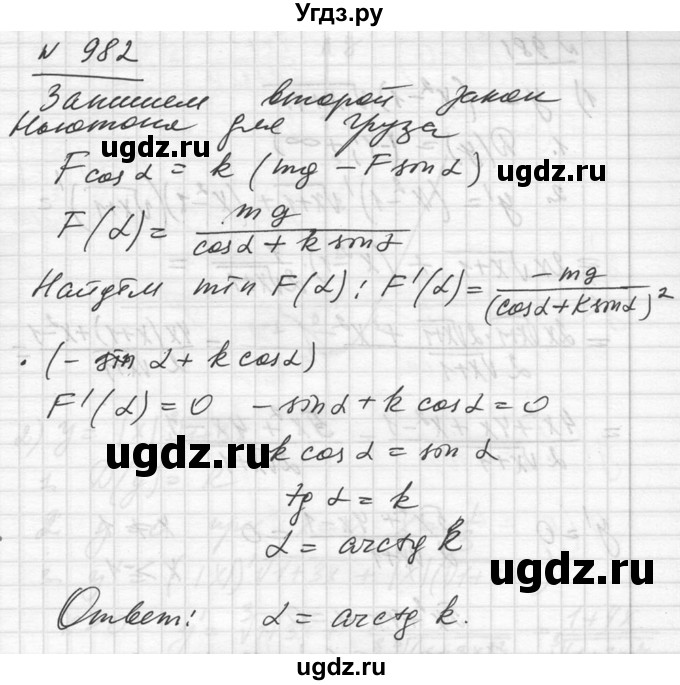 Угдз.ру
№ 982
Запишем второй закон
Ньютона для груза
ugdz.ru
ugdz.ru
F cos α = k (mg − F sin α)
F(α) = mg / (cos α + k sin α)
Найдём min F(α): F'(α) = −mg / (cos α + k sin α)²
· (− sin α + k cos α)
F'(α) = 0 − sin α + k cos α = 0
ugdz.ru
k cos α = sin α
tg α = k
α = arctg k
ugdz.ru
Ответ: α = arctg k.
ugdz.ru